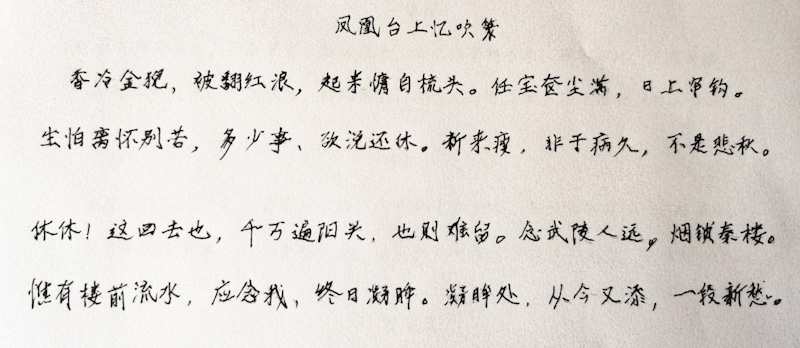 凤凰台上忆吹箫
香冷金猊，被翻红浪，起来慵自梳头。任宝奁尘满，日上帘钩。
生怕离怀别苦，多少事、欲说还休。新来瘦，非于病久，不是悲秋。
休休！这回去也，千万遍阳关，也则难留。念武陵人远，烟锁秦楼。
惟有楼前流水，应念我、终日凝眸。凝眸处，从今又添，一段新愁。